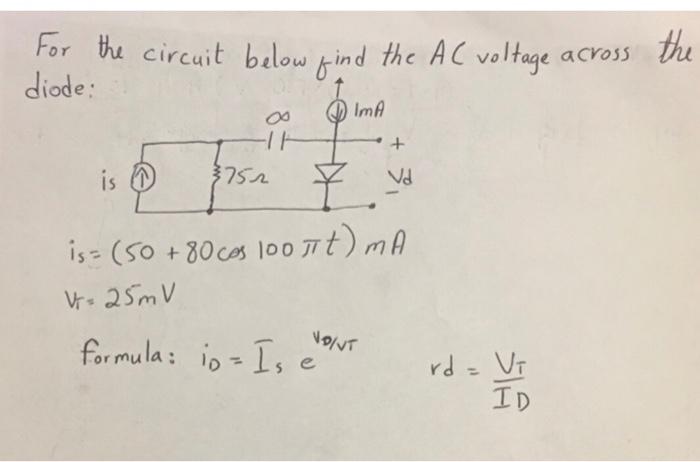 For the circuit below find the AC voltage across the
diode:
∞
1mA
+
is
75Ω
Vd
-
is = (50 + 80 cos 100 πt) mA
VT = 25mV
formula: iD = Is e^VD/VT
rd = VT/ID